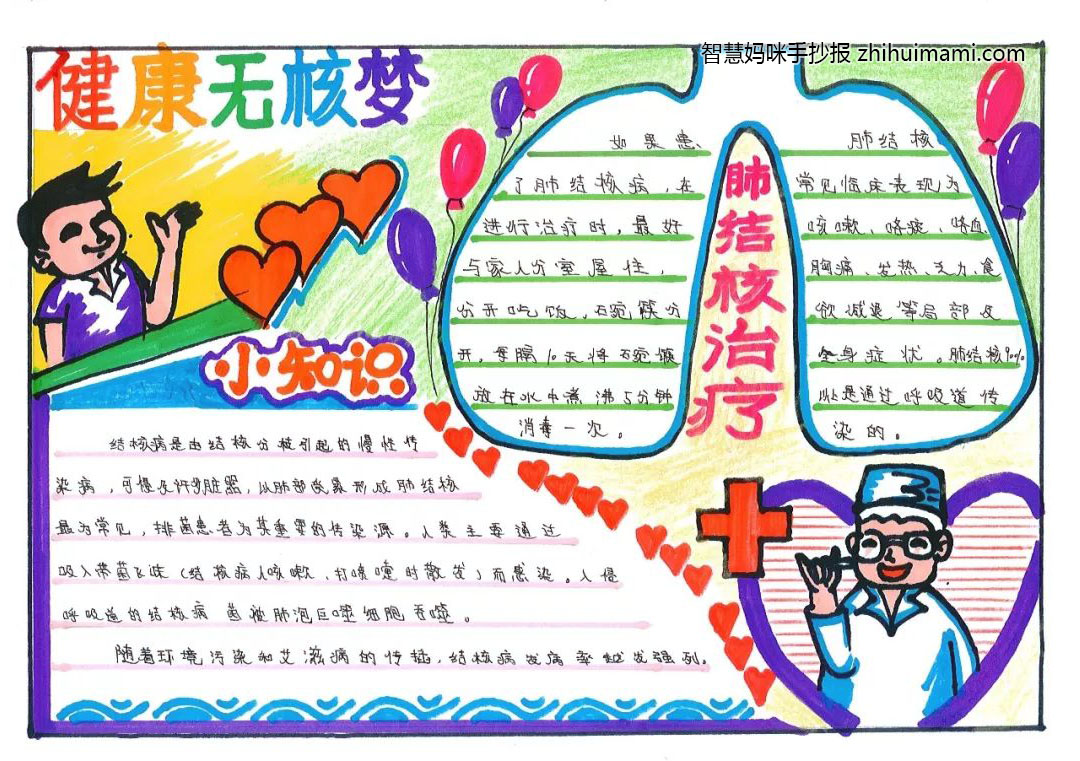 智慧妈咪手抄报 zhihuimami.com
健康无核梦
如果患
了肺结核病，在
进行治疗时，最好
与家人分室屋住，
分开吃饭，碗筷分
开，每隔10天将碗筷
放在水中煮沸5分钟
消毒一次。
肺结核治疗
肺结核
常见临床表现为
咳嗽、咯痰、咯血、
胸痛、发热、乏力、食
欲减退等局部及
全身症状。肺结核90%
以是通过呼吸道传
染的。
小知识
结核病是由结核分枝引起的慢性传
染病，可侵及许多脏器，以肺部受累形成肺结核
最为常见，排菌患者为其重要的传染源。人类主要通过
吸入带菌飞沫（结核病人咳嗽、打喷嚏时散发）而感染。入侵
呼吸道的结核病菌被肺泡巨噬细胞吞噬。
随着环境污染和艾滋病的传播，结核病发病率越发强列。